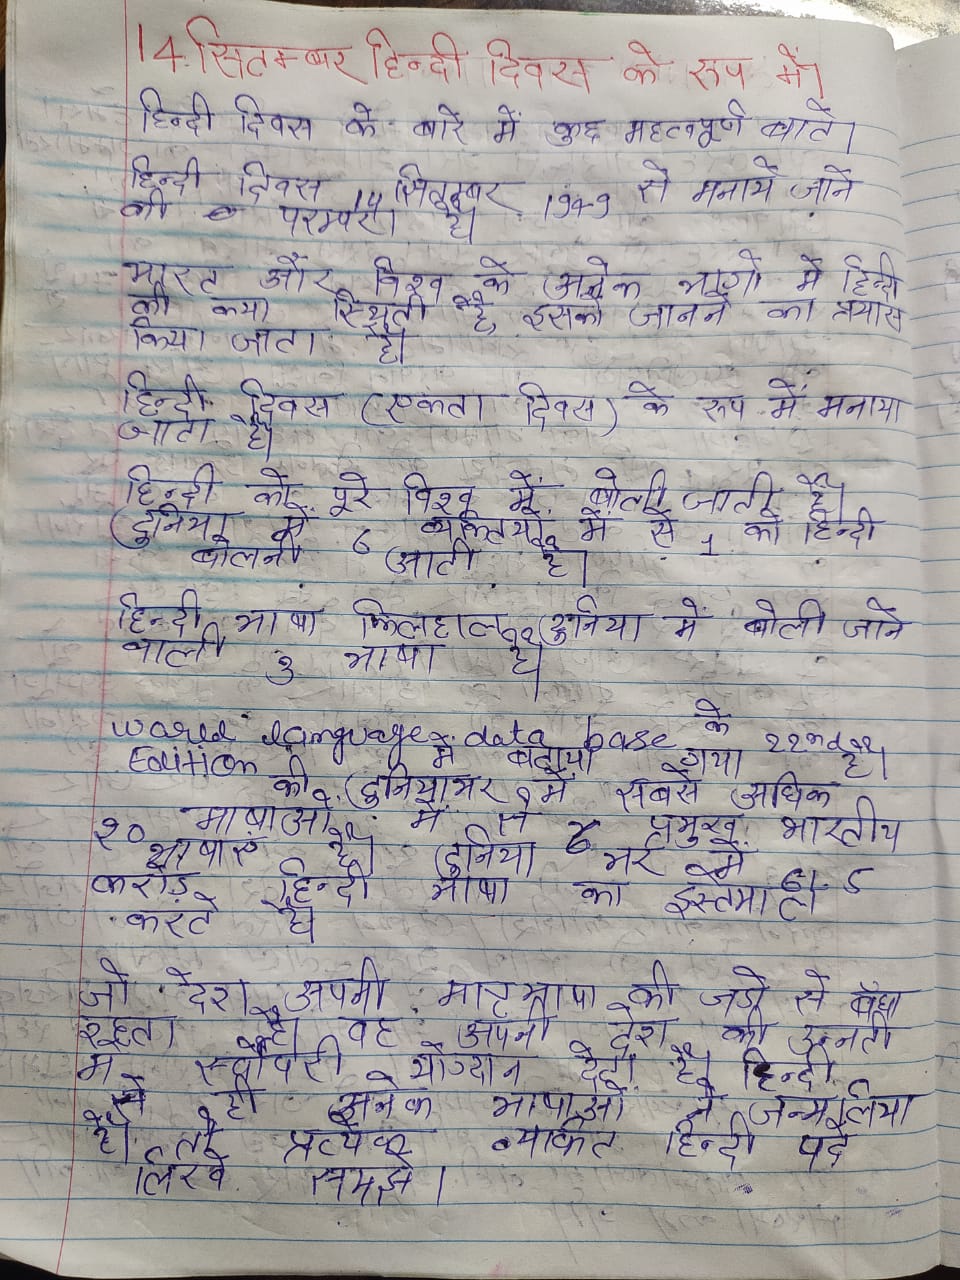 14 सितम्बर हिन्दी दिवस के रूप में।
हिन्दी दिवस के बारे में कुछ महत्वपूर्ण बातें।
हिन्दी दिवस 14 सितम्बर 1949 से मनाये जाने
की परम्परा है।
भारत और विश्व के अनेक भागों में हिन्दी
की क्या स्थिती है, इसको जानने का प्रयास
किया जाता है।
हिन्दी दिवस (एकता दिवस) के रूप में मनाया
जाता है।
हिन्दी को पूरे विश्व में बोली जाती है।
दुनिया में 6 व्यक्तियों में से 1 को हिन्दी
बोलनी आती है।
हिन्दी भाषा फिलहाल दुनिया में बोली जाने
वाली 3 भाषा है।
world language data base के 22nd
Edition में बताया गया है।
की दुनियाभर में सबसे अधिक
२० भाषाओं में से 6 प्रमुख भारतीय
भाषाएं है। दुनिया भर में 61.5
करोड़ हिन्दी भाषा का इस्तेमाल
करते है।
जो देश अपनी मातृभाषा की जड़ो से बंधा
रहता है। वह अपनी देश की उन्नती
में योग्दान देता है। हिन्दी
से ही अनेक भाषाओं ने जन्म लिया
है। तो प्रत्येक व्यक्ति हिन्दी पढ़े
लिखे समझे।